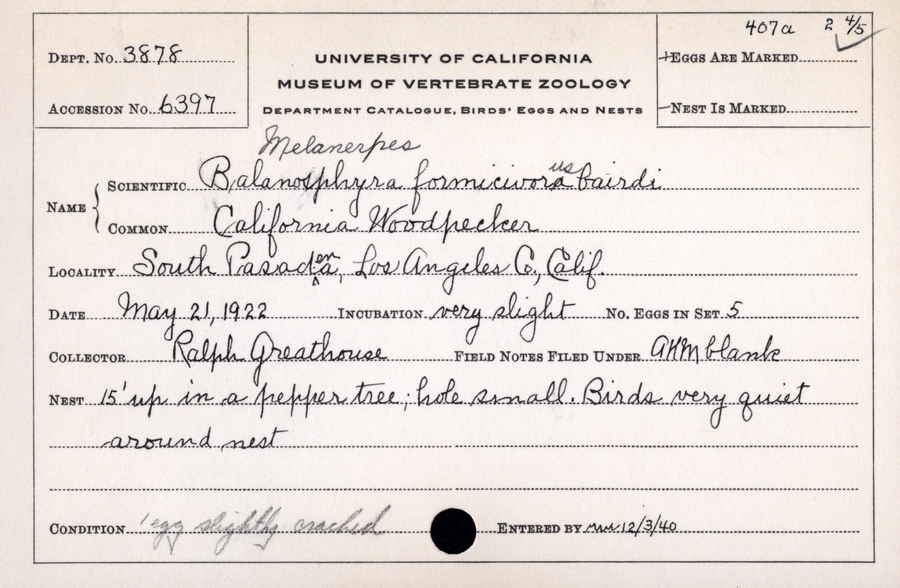 407a 2 4/5
Dept. No. 3878
UNIVERSITY OF CALIFORNIA
MUSEUM OF VERTEBRATE ZOOLOGY
Department Catalogue, Birds' Eggs and Nests
Eggs Are Marked
Accession No. 6397
Nest Is Marked
Melanerpes
Name
Scientific Balanosphyra formicivora us bairdi
Common California Woodpecker
Locality South Pasadena, Los Angeles Co., Calif.
Date May 21, 1922 Incubation very slight No. Eggs in Set 5
Collector Ralph Greathouse Field Notes Filed Under AHM blank
Nest 15' up in a pepper tree; hole small. Birds very quiet
around nest
Condition 1 egg slightly cracked Entered by 12/3/40